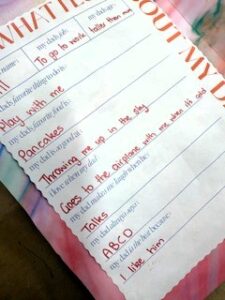 WHAT I
OUT MY D
name: my dad's job: my dad's age:
To go to work taller than
my dad's favorite thing to do is:
Play with me
my dad's favorite food is:
Pancakes
my dad is so good at:
Throwing me up in the sky
I love it when my dad:
Goes to the airplane with me when its cold
my dad makes me laugh when he:
Talks
my dad always says:
ABCD
my dad is the best because:
I like him